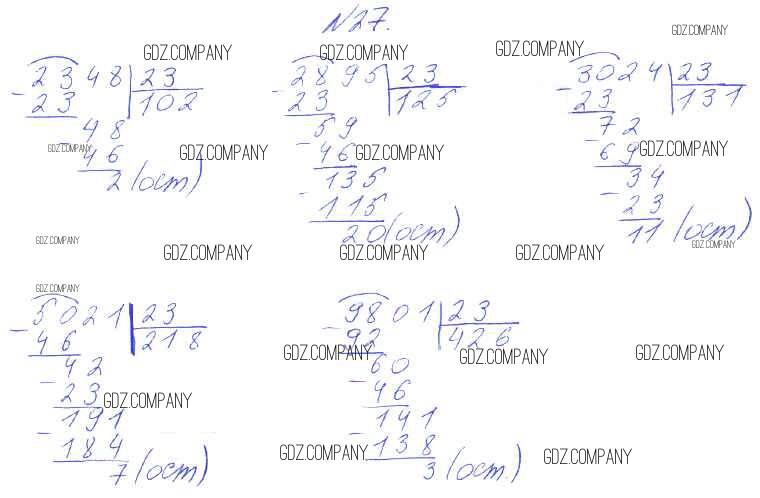 N27.
GDZ.COMPANY
GDZ.COMPANY GDZ.COMPANY GDZ.COMPANY
2348 23
23 102
48
46
2 (ост)
2895 23
23 125
59
46
135
115
20 (ост)
3024 23
23 131
72
69
34
23
11 (ост)
GDZ.COMPANY GDZ.COMPANY GDZ.COMPANY GDZ.COMPANY
GDZ.COMPANY GDZ.COMPANY GDZ.COMPANY GDZ.COMPANY GDZ.COMPANY
GDZ.COMPANY
5021 23
46 218
42
23
191
184
7 (ост)
9801 23
92 426
60
46
141
138
3 (ост.
GDZ.COMPANY GDZ.COMPANY GDZ.COMPANY
GDZ.COMPANY
GDZ.COMPANY GDZ.COMPANY